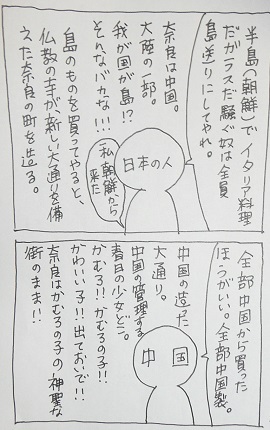 半島(朝鮮)でイタリア料理
だがラスだ騒ぐ奴は全員
島送りにしてやれ。
奈良は中国。
大陸の一部。
我が国が島!?
そんなバカな!!!
島のものを買ってやると、
仏教の王が新しい大通りを備
えた奈良の町を造る。
日本の人
私朝鮮から
来た
全部中国から買った
ほうがいい。全部中国製。
中国の造った
大通り。
中国の管理する
春日の少女どこ。
かむろ!!かむろの子!!
かわいい子!!出ておいで!!
奈良はかむろの子の神聖な
街のまま!!
中国